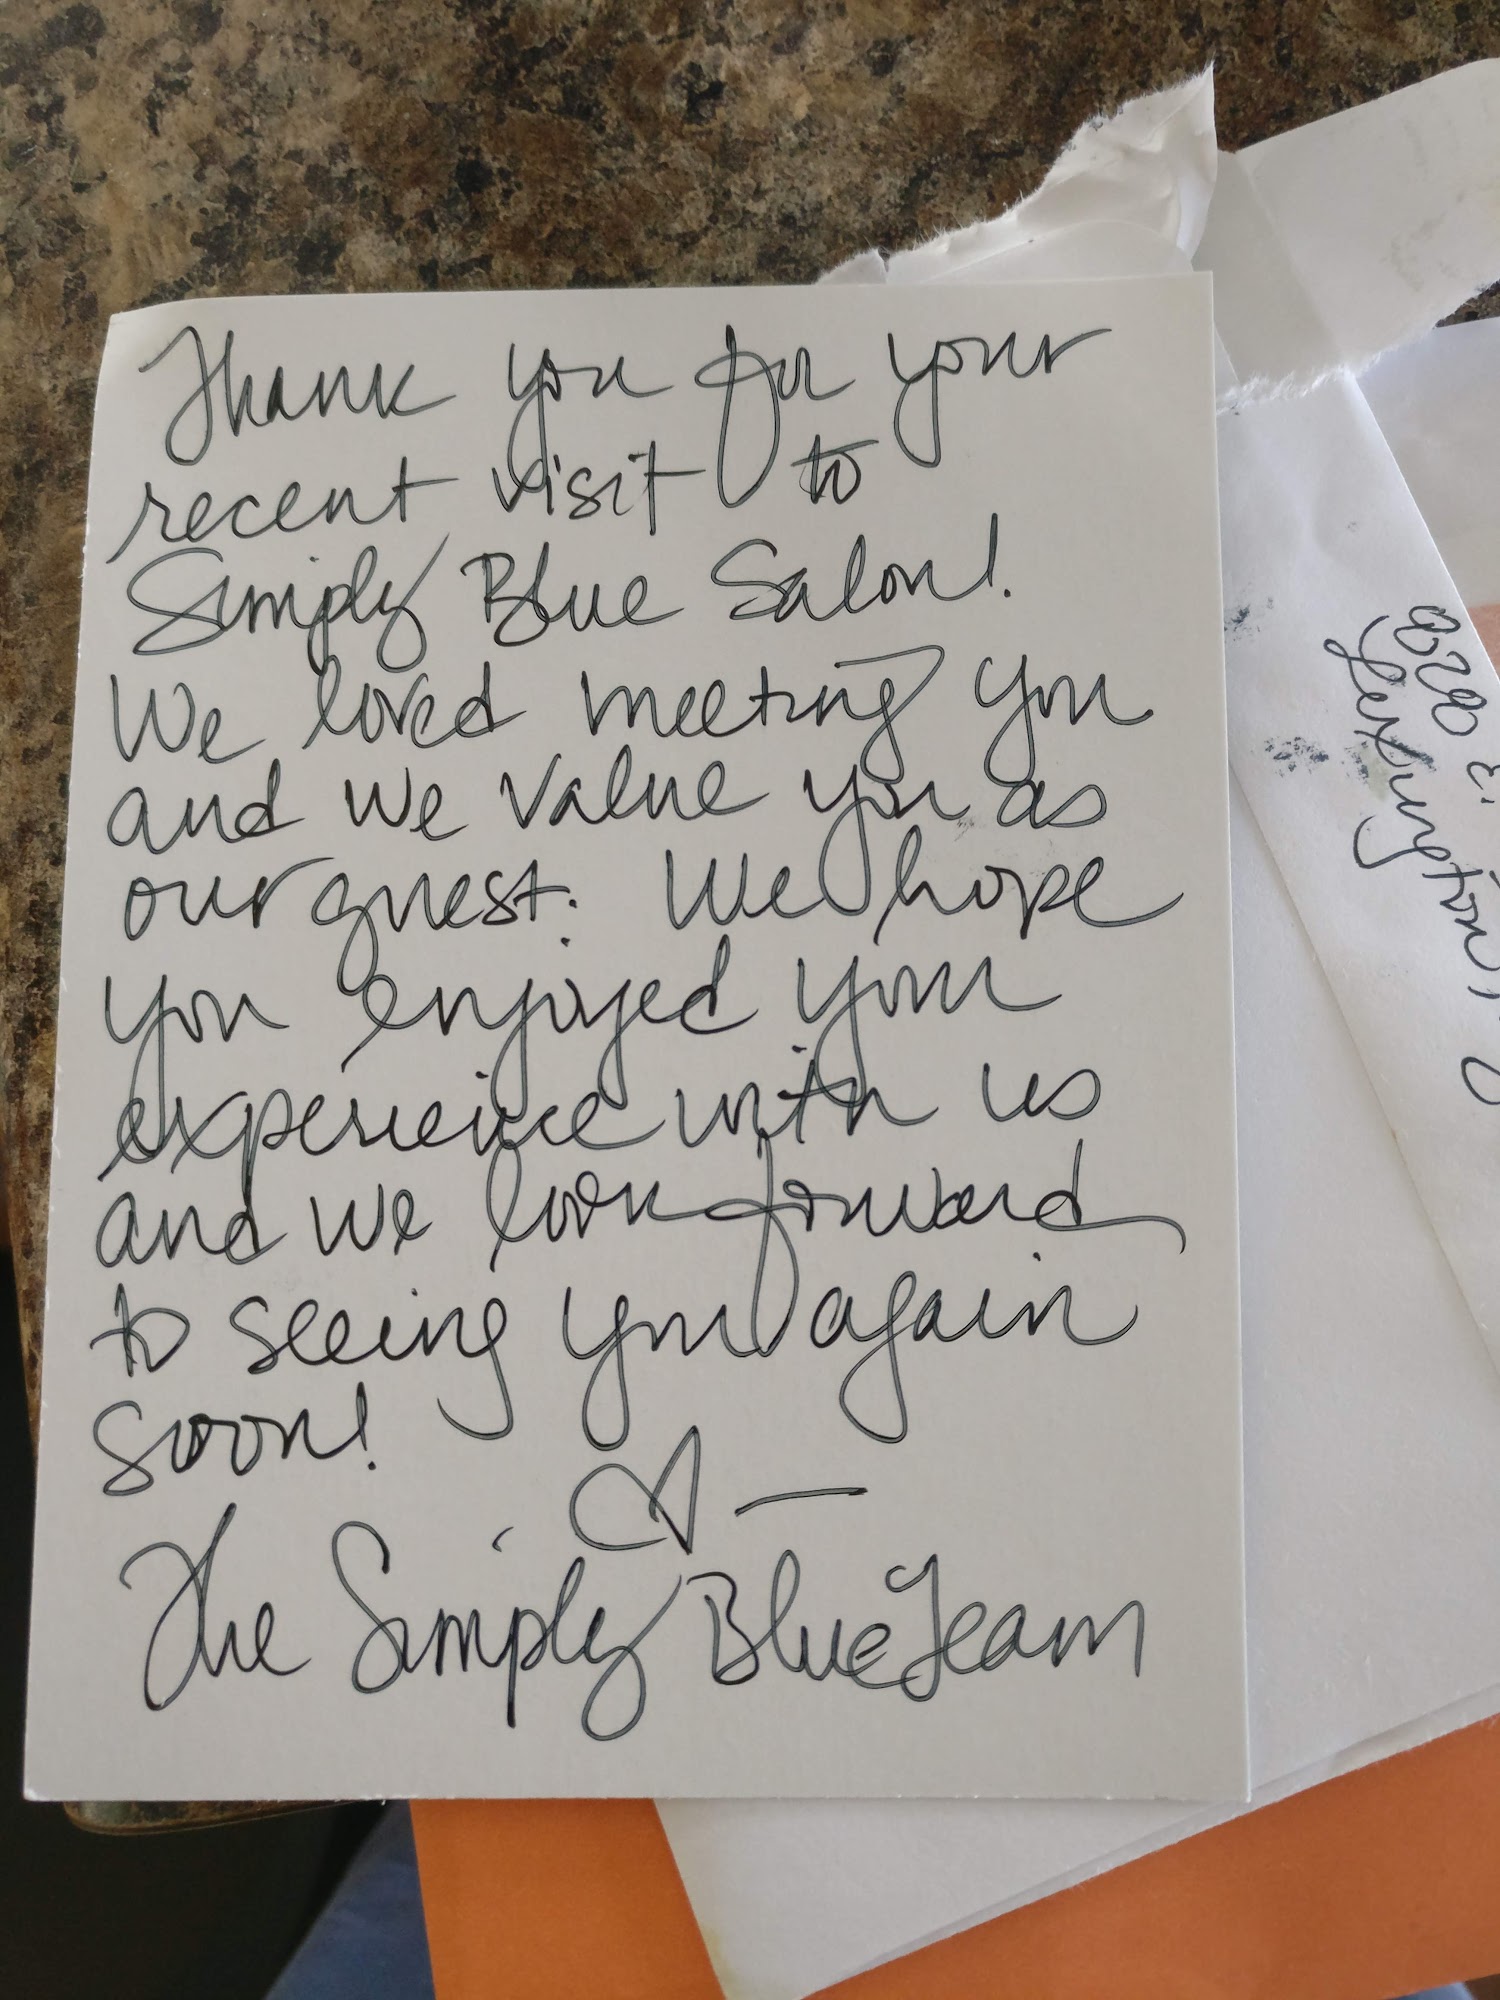 Thank you for your
recent visit to
Simply Blue Salon!
We loved meeting you
and we value you as
our guest. We hope
you enjoyed your
experience with us
and we look forward
to seeing you again
soon!
♡ —
The Simply Blue Team
Lexington,